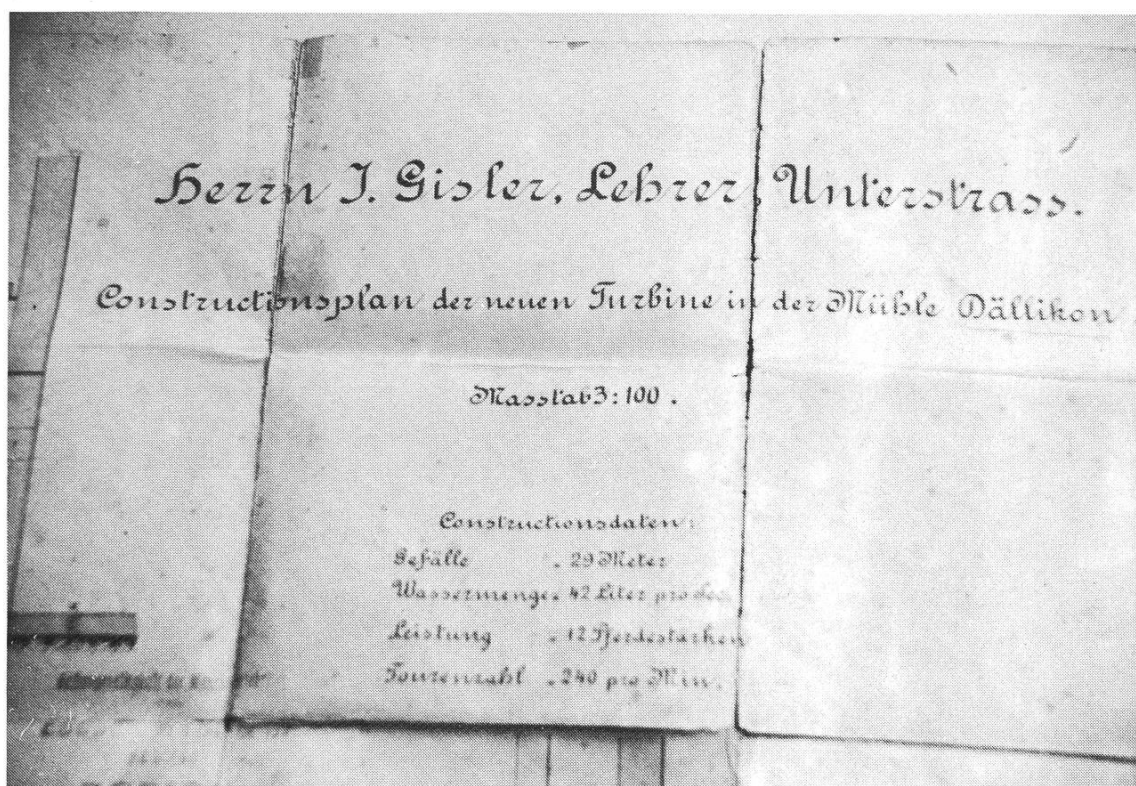 Herrn J. Gisler, Lehrer, Unterstrass.
Constructionsplan der neuen Turbine in der Mühle Dällikon.
Masstab 3:100.
Constructionsdaten:
Gefälle . 29 Meter
Wassermenge. 42 Liter pro Sec.
Leistung . 12 Pferdestärken
Tourenzahl . 240 pro Min.